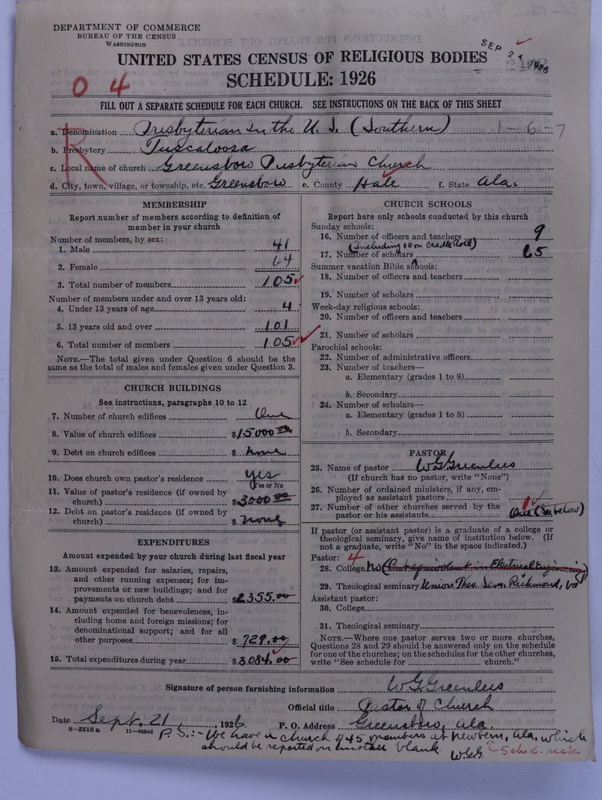 DEPARTMENT OF COMMERCE
BUREAU OF THE CENSUS
WASHINGTON
SEP 21 1926
UNITED STATES CENSUS OF RELIGIOUS BODIES
SCHEDULE: 1926
0 4
FILL OUT A SEPARATE SCHEDULE FOR EACH CHURCH. SEE INSTRUCTIONS ON THE BACK OF THIS SHEET
R
a. Denomination Presbyterian in the U. S. (Southern) 1-60-7
b. Presbytery Tuscaloosa
c. Local name of church Greensboro Presbyterian Church
d. City, town, village, or township, etc. Greensboro e. County Hale f. State Ala.
MEMBERSHIP
Report number of members according to definition of
member in your church
Number of members, by sex:
1. Male 41
2. Female 64
3. Total number of members 105
Number of members under and over 13 years old:
4. Under 13 years of age 4
5. 13 years old and over 101
6. Total number of members 105
NOTE.—The total given under Question 6 should be the
same as the total of males and females given under Question 3.
CHURCH BUILDINGS
See instructions, paragraphs 10 to 12
7. Number of church edifices One
8. Value of church edifices $15000.00
9. Debt on church edifices $ none
10. Does church own pastor's residence yes
Yes or No
11. Value of pastor's residence (if owned by
church) $3000.00
12. Debt on pastor's residence (if owned by
church) $ none
EXPENDITURES
Amount expended by your church during last fiscal year
13. Amount expended for salaries, repairs,
and other running expenses; for im-
provements or new buildings; and for
payments on church debt $2355.00
14. Amount expended for benevolences, in-
cluding home and foreign missions; for
denominational support; and for all
other purposes $729.00
15. Total expenditures during year $3084.00
CHURCH SCHOOLS
Report here only schools conducted by this church
Sunday schools:
16. Number of officers and teachers 9
(including 10 on Cradle Roll)
17. Number of scholars 65
Summer vacation Bible schools:
18. Number of officers and teachers
19. Number of scholars
Week-day religious schools:
20. Number of officers and teachers
21. Number of scholars
Parochial schools:
22. Number of administrative officers
23. Number of teachers—
a. Elementary (grades 1 to 8)
b. Secondary
24. Number of scholars—
a. Elementary (grades 1 to 8)
b. Secondary
PASTOR
25. Name of pastor W G Greenlees
(If church has no pastor, write "None")
26. Number of ordained ministers, if any, em-
ployed as assistant pastors
27. Number of other churches served by the
pastor or his assistants One (See below)
If pastor (or assistant pastor) is a graduate of a college or
theological seminary, give name of institution below. (If
not a graduate, write "No" in the space indicated.)
Pastor: 4
28. College No
29. Theological seminary Union Theo. Sem. Richmond, Va
Assistant pastor:
30. College
31. Theological seminary
NOTE.—Where one pastor serves two or more churches,
Questions 28 and 29 should be answered only on the schedule
for one of the churches; on the schedules for the other churches,
write "See schedule for church."
Signature of person furnishing information W G Greenlees
Official title Pastor of Church
Date Sept. 21, 1926 P. O. Address Greensboro, Ala.
8-5518a
P. S:- We have a church of 45 members at Newbern, Ala, which
should be reported on another blank W.G.G. Sched. recd.